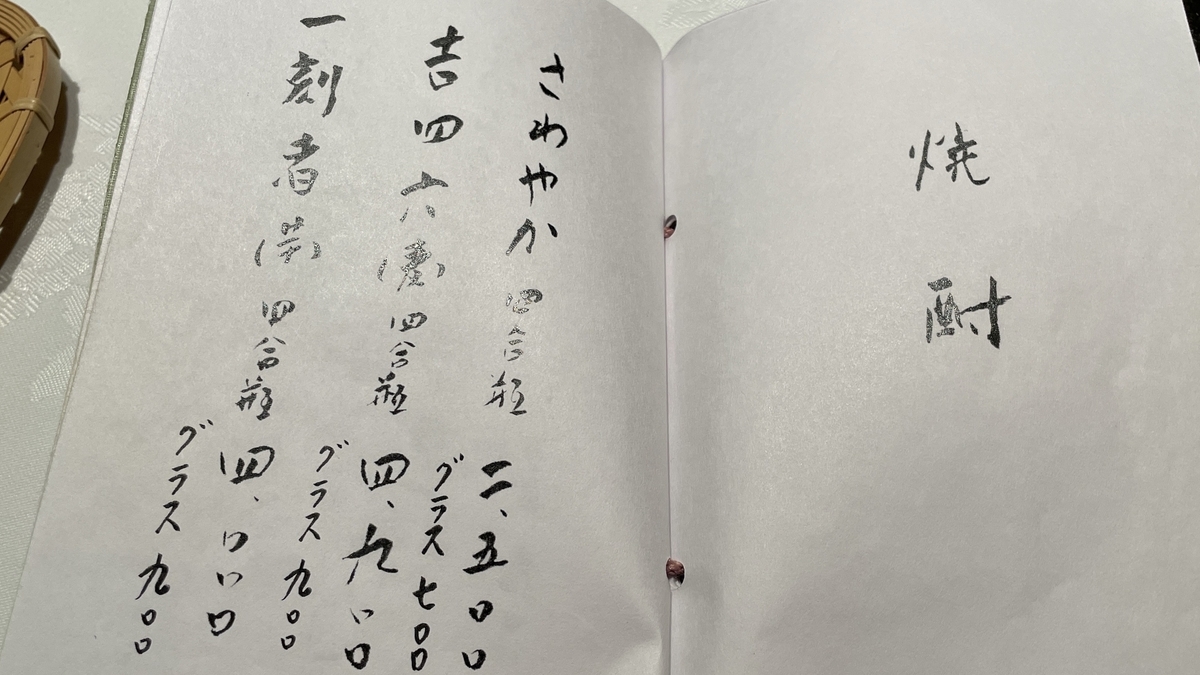 焼酎
さわやか 四合瓶 二、五〇〇
グラス 七〇〇
吉四六(麦) 四合瓶 四、九〇〇
グラス 九〇〇
一刻者(芋) 四合瓶 四、〇〇〇
グラス 九〇〇